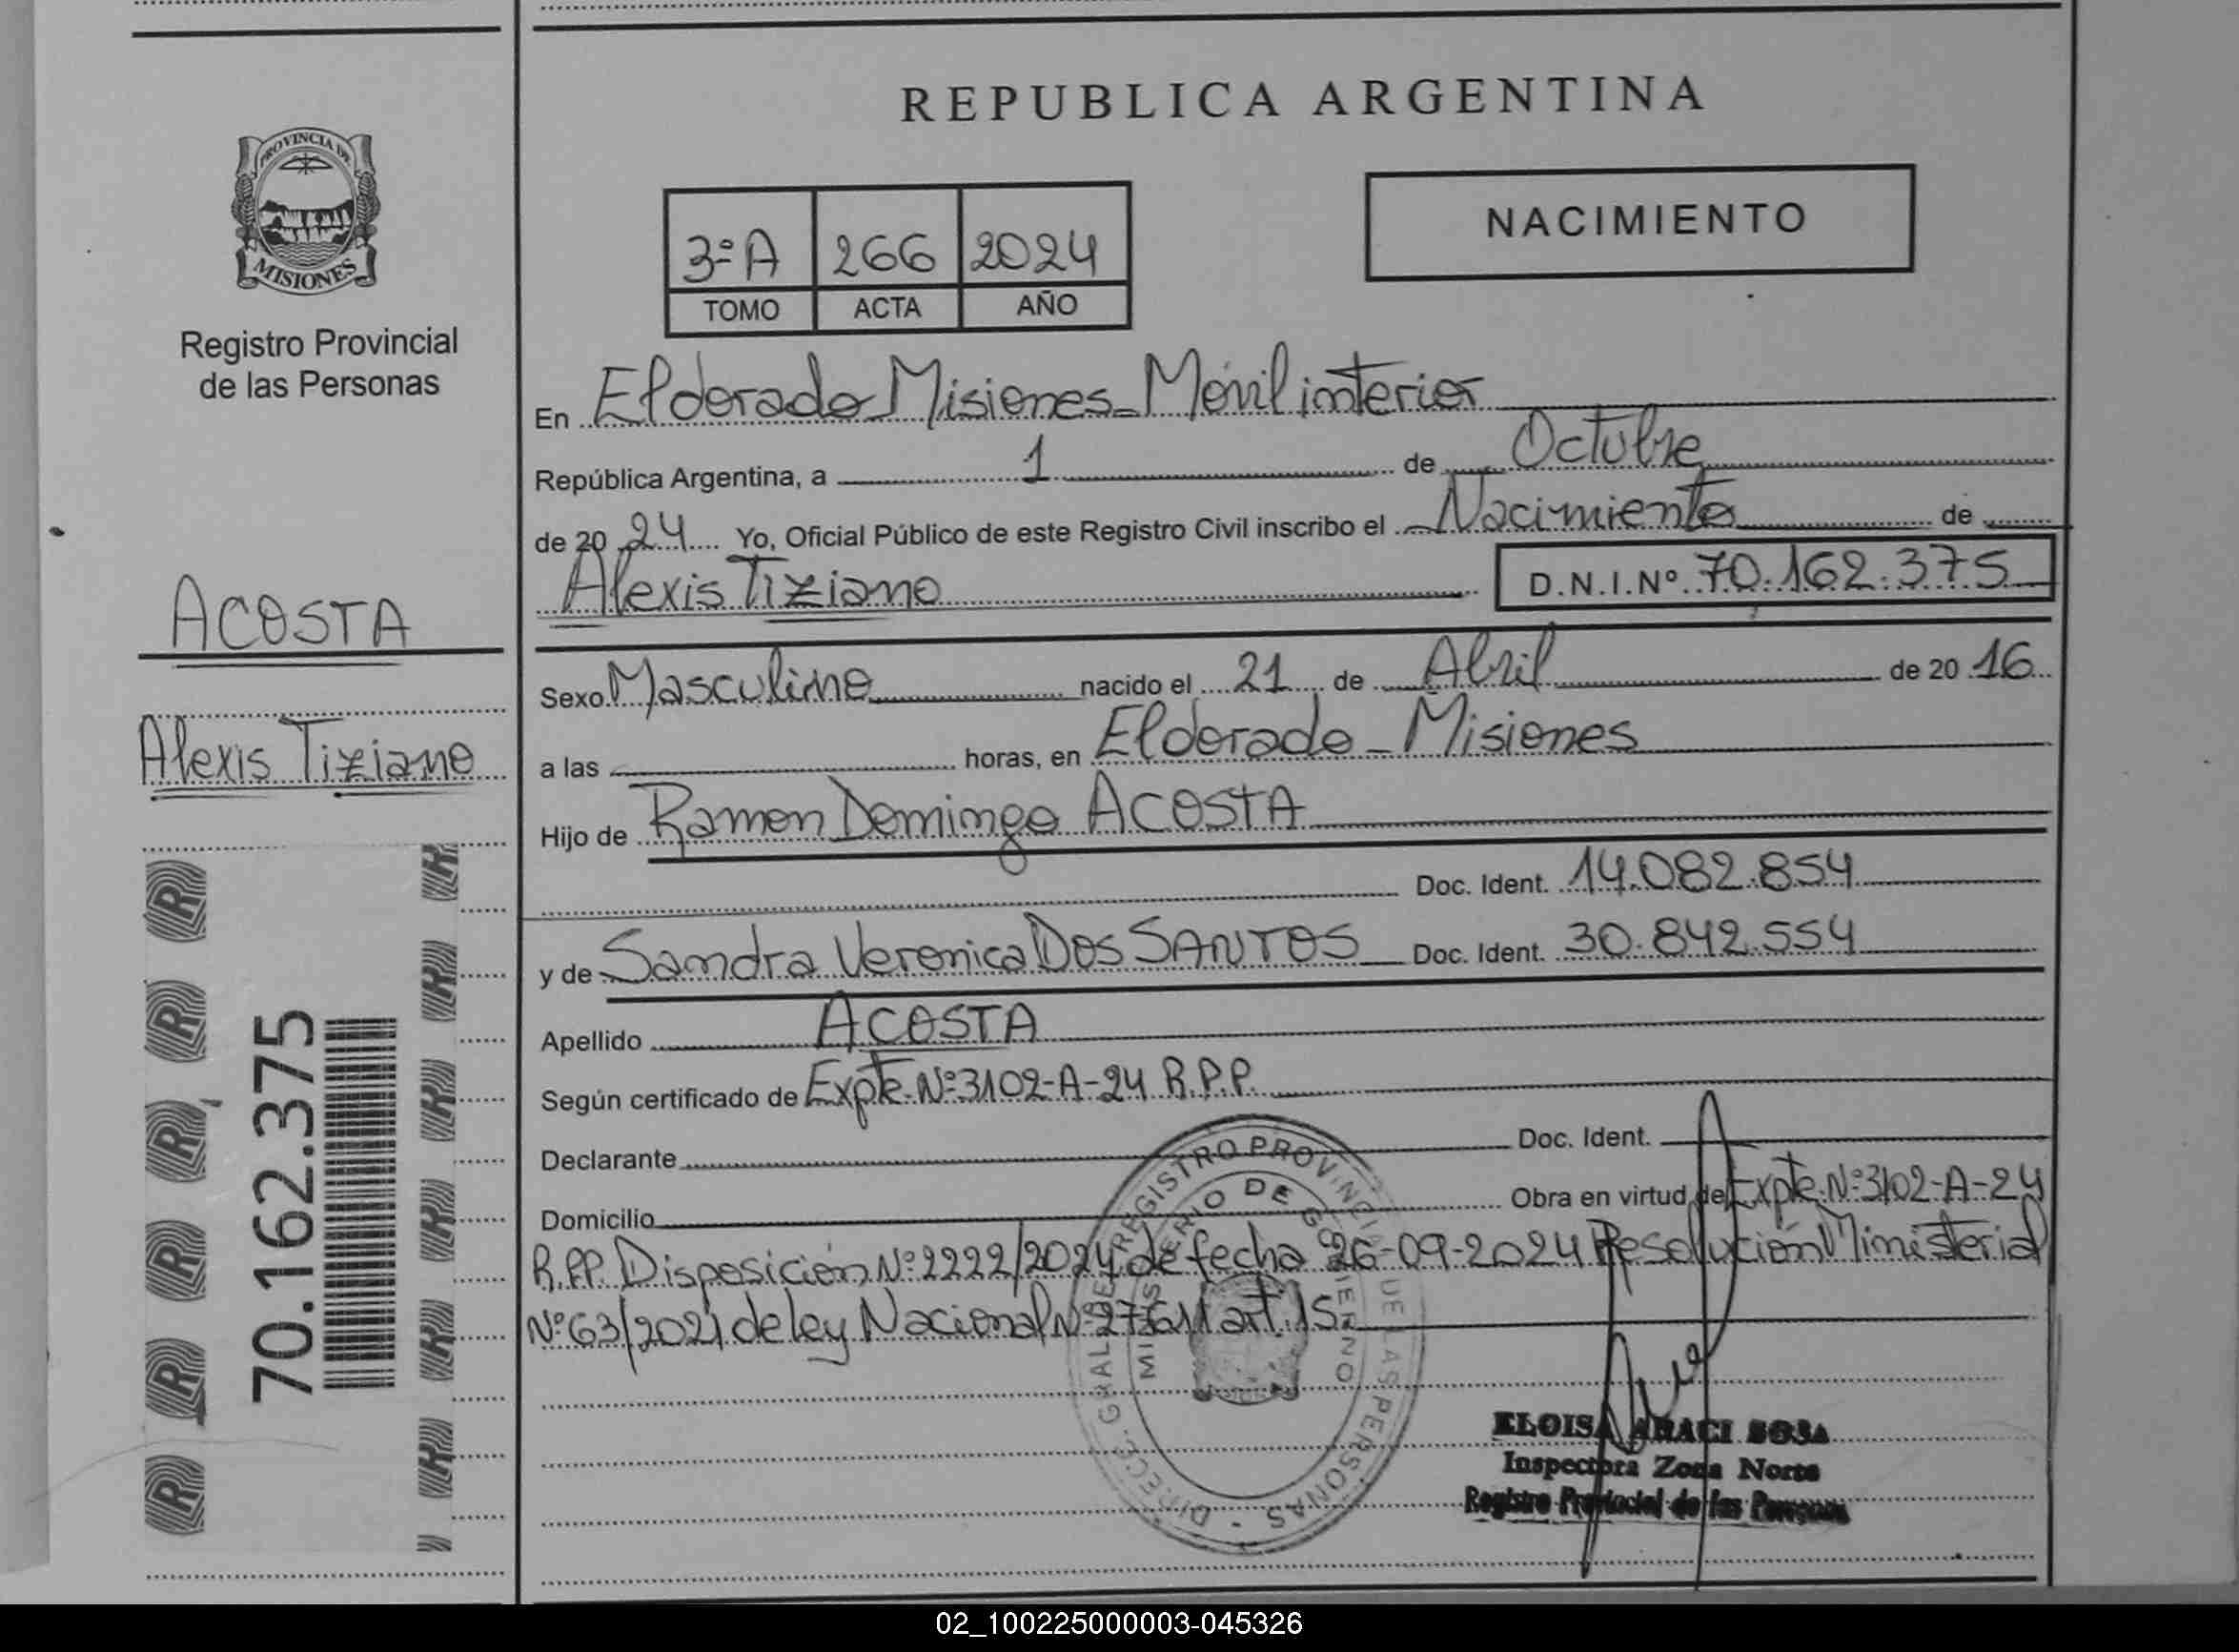 REPUBLICA ARGENTINA
PROVINCIA DE
MISIONES
Registro Provincial
de las Personas
3º A 266 2024
TOMO ACTA AÑO
NACIMIENTO
En Eldorado Misiones - Móvil interior
República Argentina, a 1 de Octubre
de 20 24 Yo, Oficial Público de este Registro Civil inscribo el Nacimiento de
Alexis Tiziano D.N.I.Nº 70.162.375
ACOSTA
Alexis Tiziano
70.162.375
Sexo Masculino nacido el 21 de Abril de 20 16
a las horas, en Eldorado - Misiones
Hijo de Ramon Domingo ACOSTA
Doc. Ident. 14.082.854
y de Sandra Veronica DOS SANTOS Doc. Ident. 30.842.554
Apellido ACOSTA
Según certificado de Expte. Nº 3102-A-24 R.P.P.
Declarante Doc. Ident.
Domicilio Obra en virtud de Expte. Nº 3102-A-24
R.P.P. Disposición Nº 2222/2024 de fecha 26-09-2024 Resolución Ministerial
Nº 63/2021 de ley Nacional Nº 27611 art. 15
DIRECC. GRAL. DE REGISTRO PROVINCIAL DE LAS PERSONAS
MINISTERIO DE GOBIERNO
ELOISA ARACI SOSA
Inspectora Zona Norte
Registro Provincial de las Personas
02_100225000003-045326